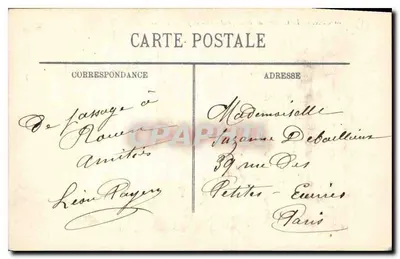 CARTE POSTALE
CORRESPONDANCE
De passage à
Rouen
Amitiés
Léon Payen
ADRESSE
Mademoiselle
Suzanne Debaillieux
39 rue Des
Petites - Ecuries
Paris